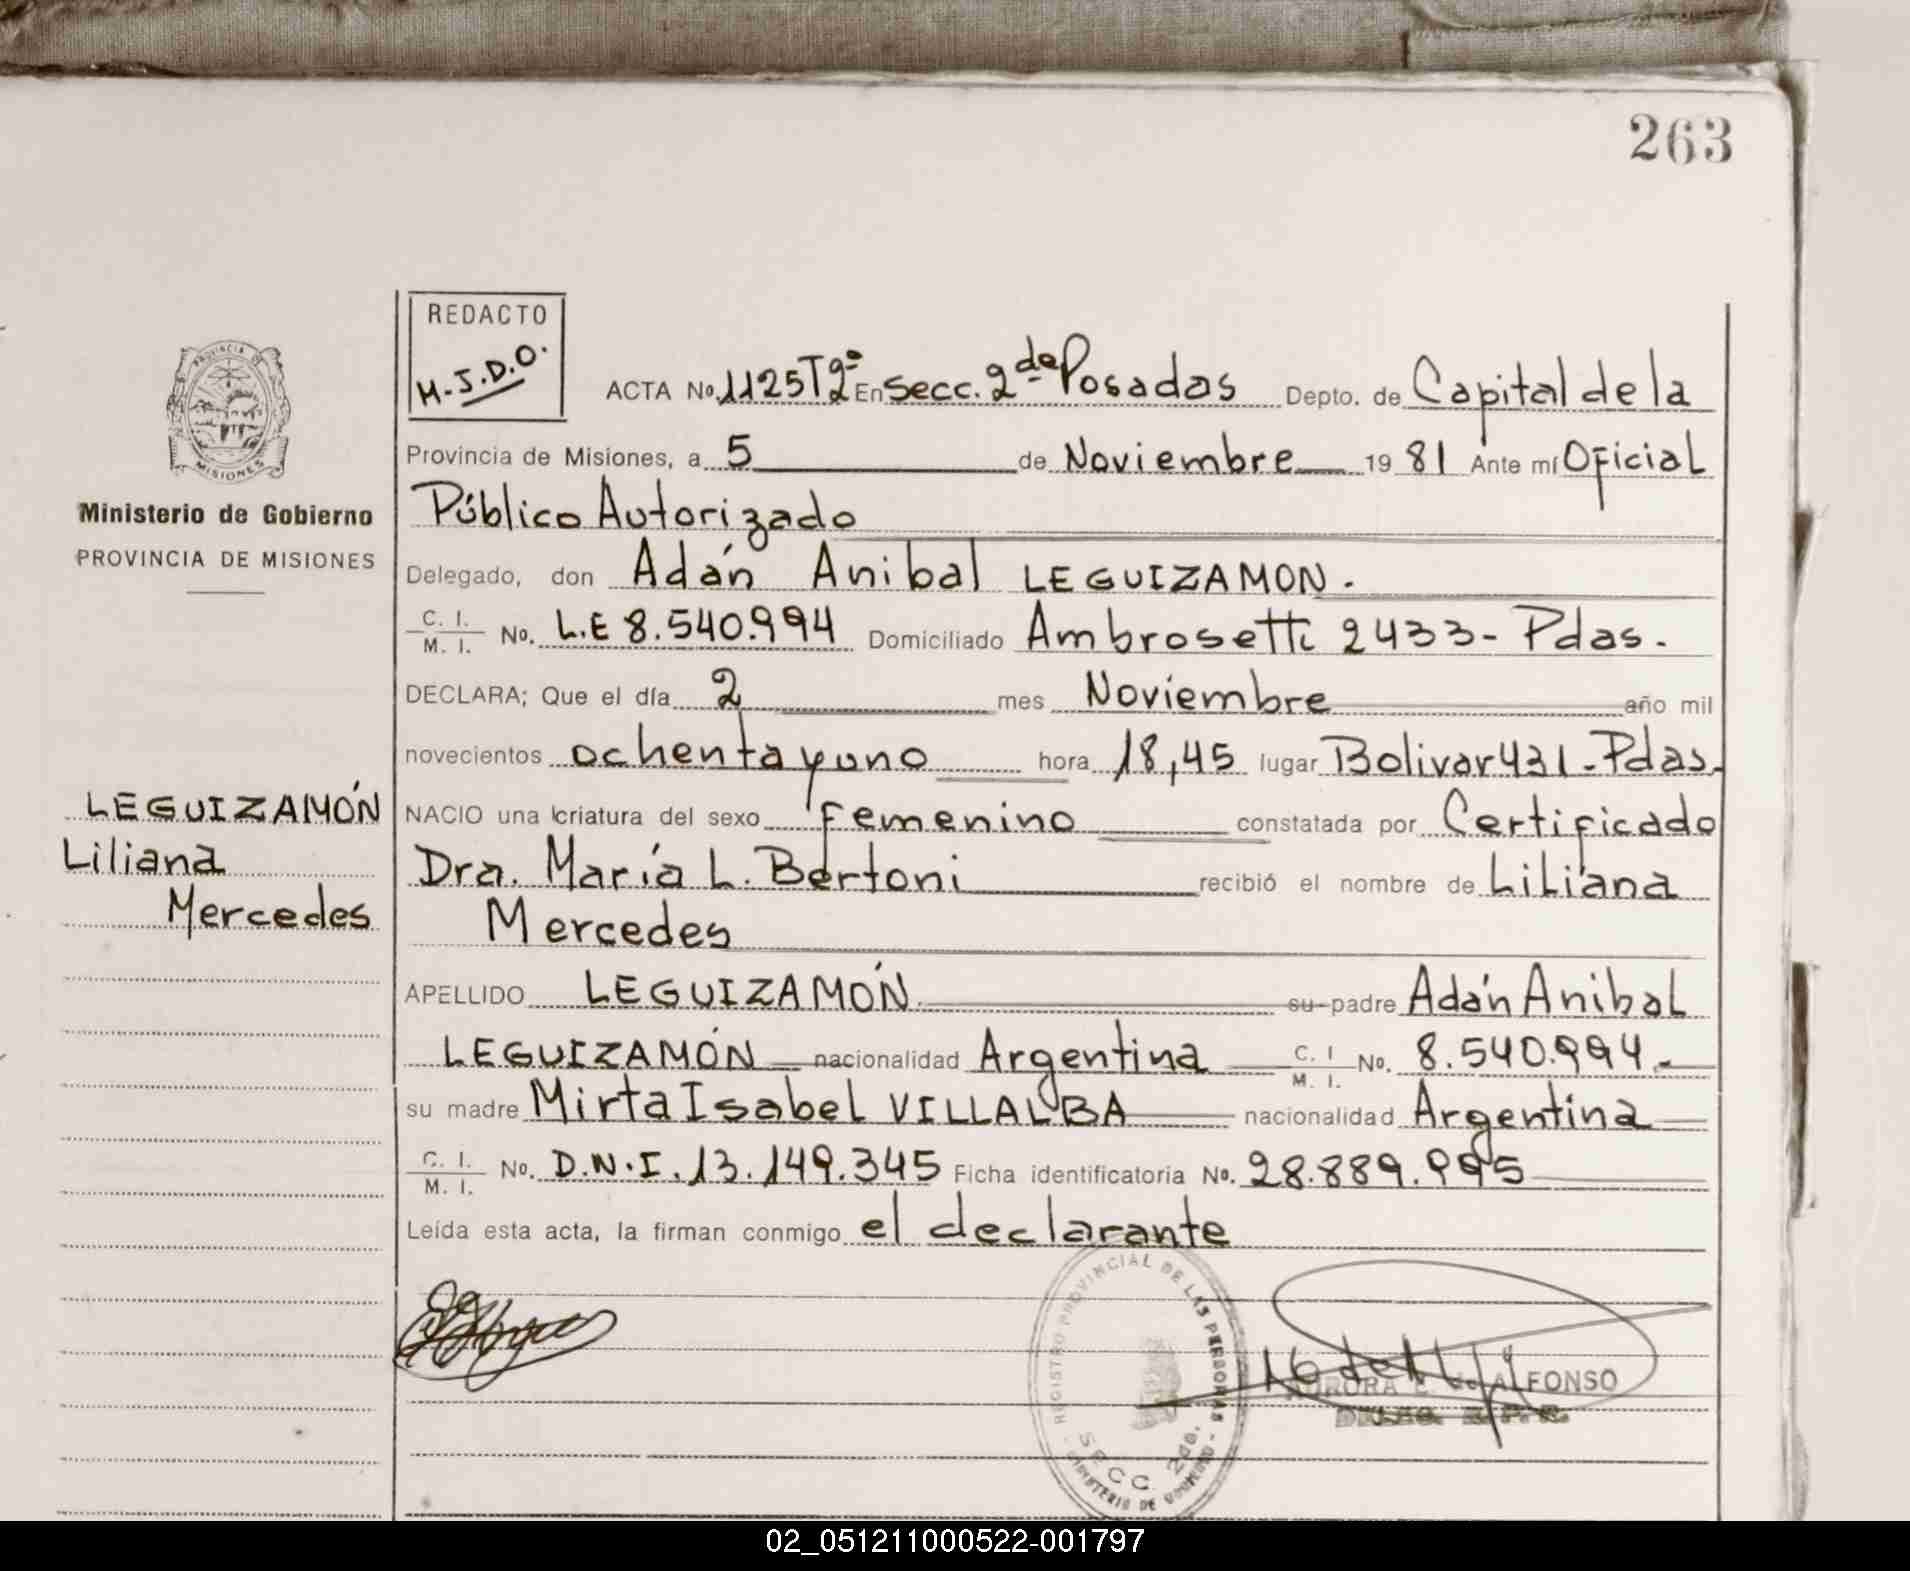 263
REDACTO
M.J.D.O.
PROVINCIA DE
MISIONES
Ministerio de Gobierno
PROVINCIA DE MISIONES
LEGUIZAMÓN
Liliana
Mercedes
ACTA No. 1125 T2º En Secc. 2da Posadas Depto. de Capital de la
Provincia de Misiones, a 5 de Noviembre 19 81 Ante mí Oficial
Público Autorizado
Delegado, don Adán Anibal LEGUIZAMON.
C. I. / M. I. No. L.E 8.540.994 Domiciliado Ambrosetti 2433 - Pdas.
DECLARA; Que el día 2 mes Noviembre año mil
novecientos ochenta y uno hora 18,45 lugar Bolivar 431 - Pdas.
NACIO una criatura del sexo Femenino constatada por Certificado
Dra. María L. Bertoni recibió el nombre de Liliana
Mercedes
APELLIDO LEGUIZAMÓN su padre Adán Anibal
LEGUIZAMÓN nacionalidad Argentina C. I / M. I. No. 8.540.994.-
su madre Mirta Isabel VILLALBA nacionalidad Argentina
C. I. / M. I. No. D.N.I. 13.149.345 Ficha identificatoria No. 28.889.995
Leída esta acta, la firman conmigo el declarante
REGISTRO PROVINCIAL DE LAS PERSONAS
SECC. 2da.
MINISTERIO DE GOBIERNO
AURORA E. de ALFONSO
02_051211000522-001797